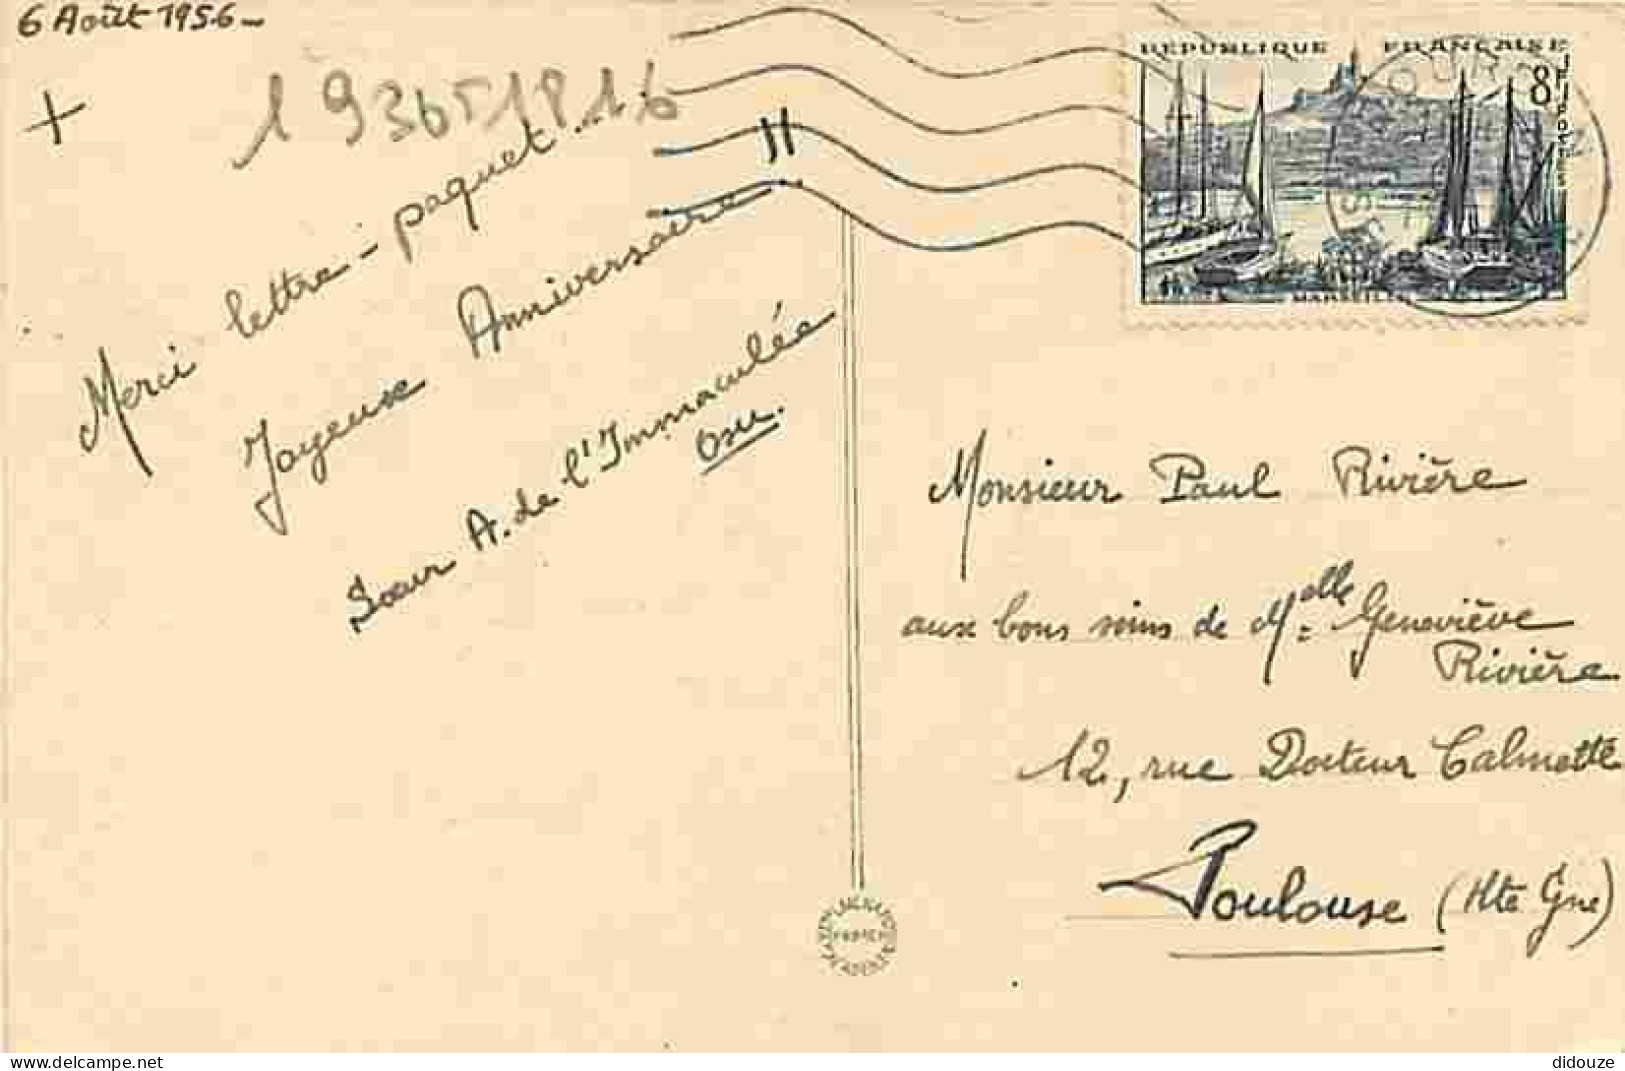 6 Août 1956 -
+
1 936518 16
Merci lettre - paquet...
Joyeux Anniversaire !!
Sœur A. de l'Immaculée
osu.
RÉPUBLIQUE FRANÇAISE
8F
MARSEILLE
Monsieur Paul Rivière
aux bons soins de Melle Geneviève
Rivière
12, rue Docteur Calmette
Toulouse (Hte Gne)
didouze